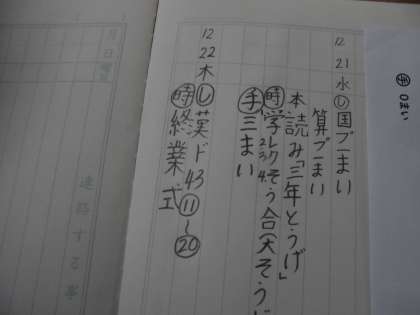 12 21 水 ㋛ 国プ一まい
算プ一まい
本読み「三年とうげ」
時 学レク 2、3、4、そう合(大そうじ
手 三まい
12 22 木 ㋛ 漢ド43⑪〜⑳
時 終業式
手 1まい
月 日
連絡する事